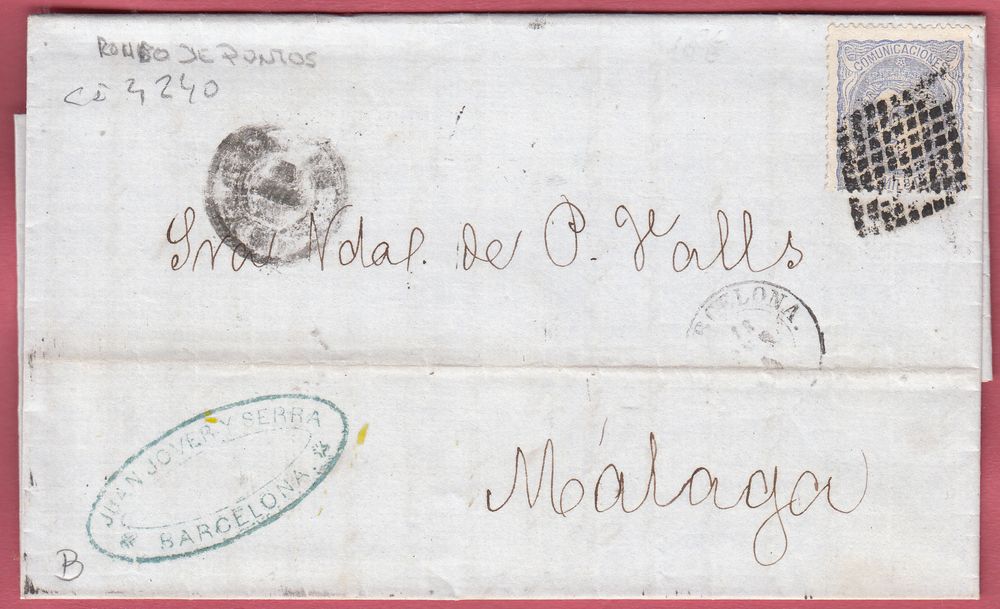 ROMBO DE PUNTOS
4240
COMUNICACIONES
Sra Vda. de P. Valls
RCELONA.
JUAN JOVER Y SERRA
BARCELONA
Málaga
B